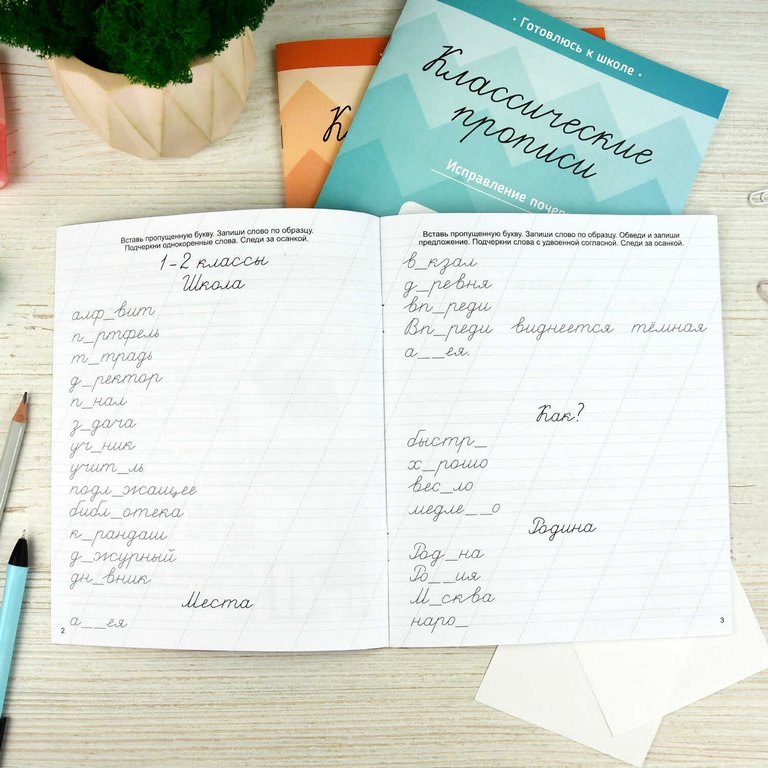 · Готовлюсь к школе ·
Классические
прописи
Исправление почер
К
Вставь пропущенную букву. Запиши слово по образцу.
Подчеркни однокоренные слова. Следи за осанкой.
1-2 классы
Школа
алф_вит
п_ртфель
т_традь
д_ректор
п_нал
з_дача
уч_ник
учит_ль
подл_жащее
библ_отека
к_рандаш
д_журный
дн_вник
Места
а__ея
2
Вставь пропущенную букву. Запиши слово по образцу. Обведи и запиши
предложение. Подчеркни слова с удвоенной согласной. Следи за осанкой.
в_кзал
д_ревня
вп_реди
Вп_реди виднеется тёмная
а__ея.
Как?
быстр_
х_рошо
вес_ло
медле__о
Родина
Род_на
Ро__ия
М_сква
наро_
3